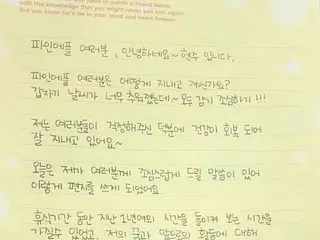 with the knowledge that you might never see him again.
But you know he'll be in your mind and heart forever.
파인에플 여러분, 안녕하세요~ 현주 입니다.
파인에플 여러분은 어떻게 지내고 계신가요?
갑자기 날씨가 너무 추워졌는데~ 모두 감기 조심하기!!!
저는 여러분들이 걱정해주신 덕분에 건강이 회복 되어
잘 지내고 있어요~
오늘은 제가 여러분께 조심스럽게 드릴 말씀이 있어
이렇게 편지를 쓰게 되었어요.
휴식기간 동안 지난 1년여의 시간을 돌이켜 보는 시간을
가질수 있었고, 저의 꿈과 앞으로의 활동에 대해